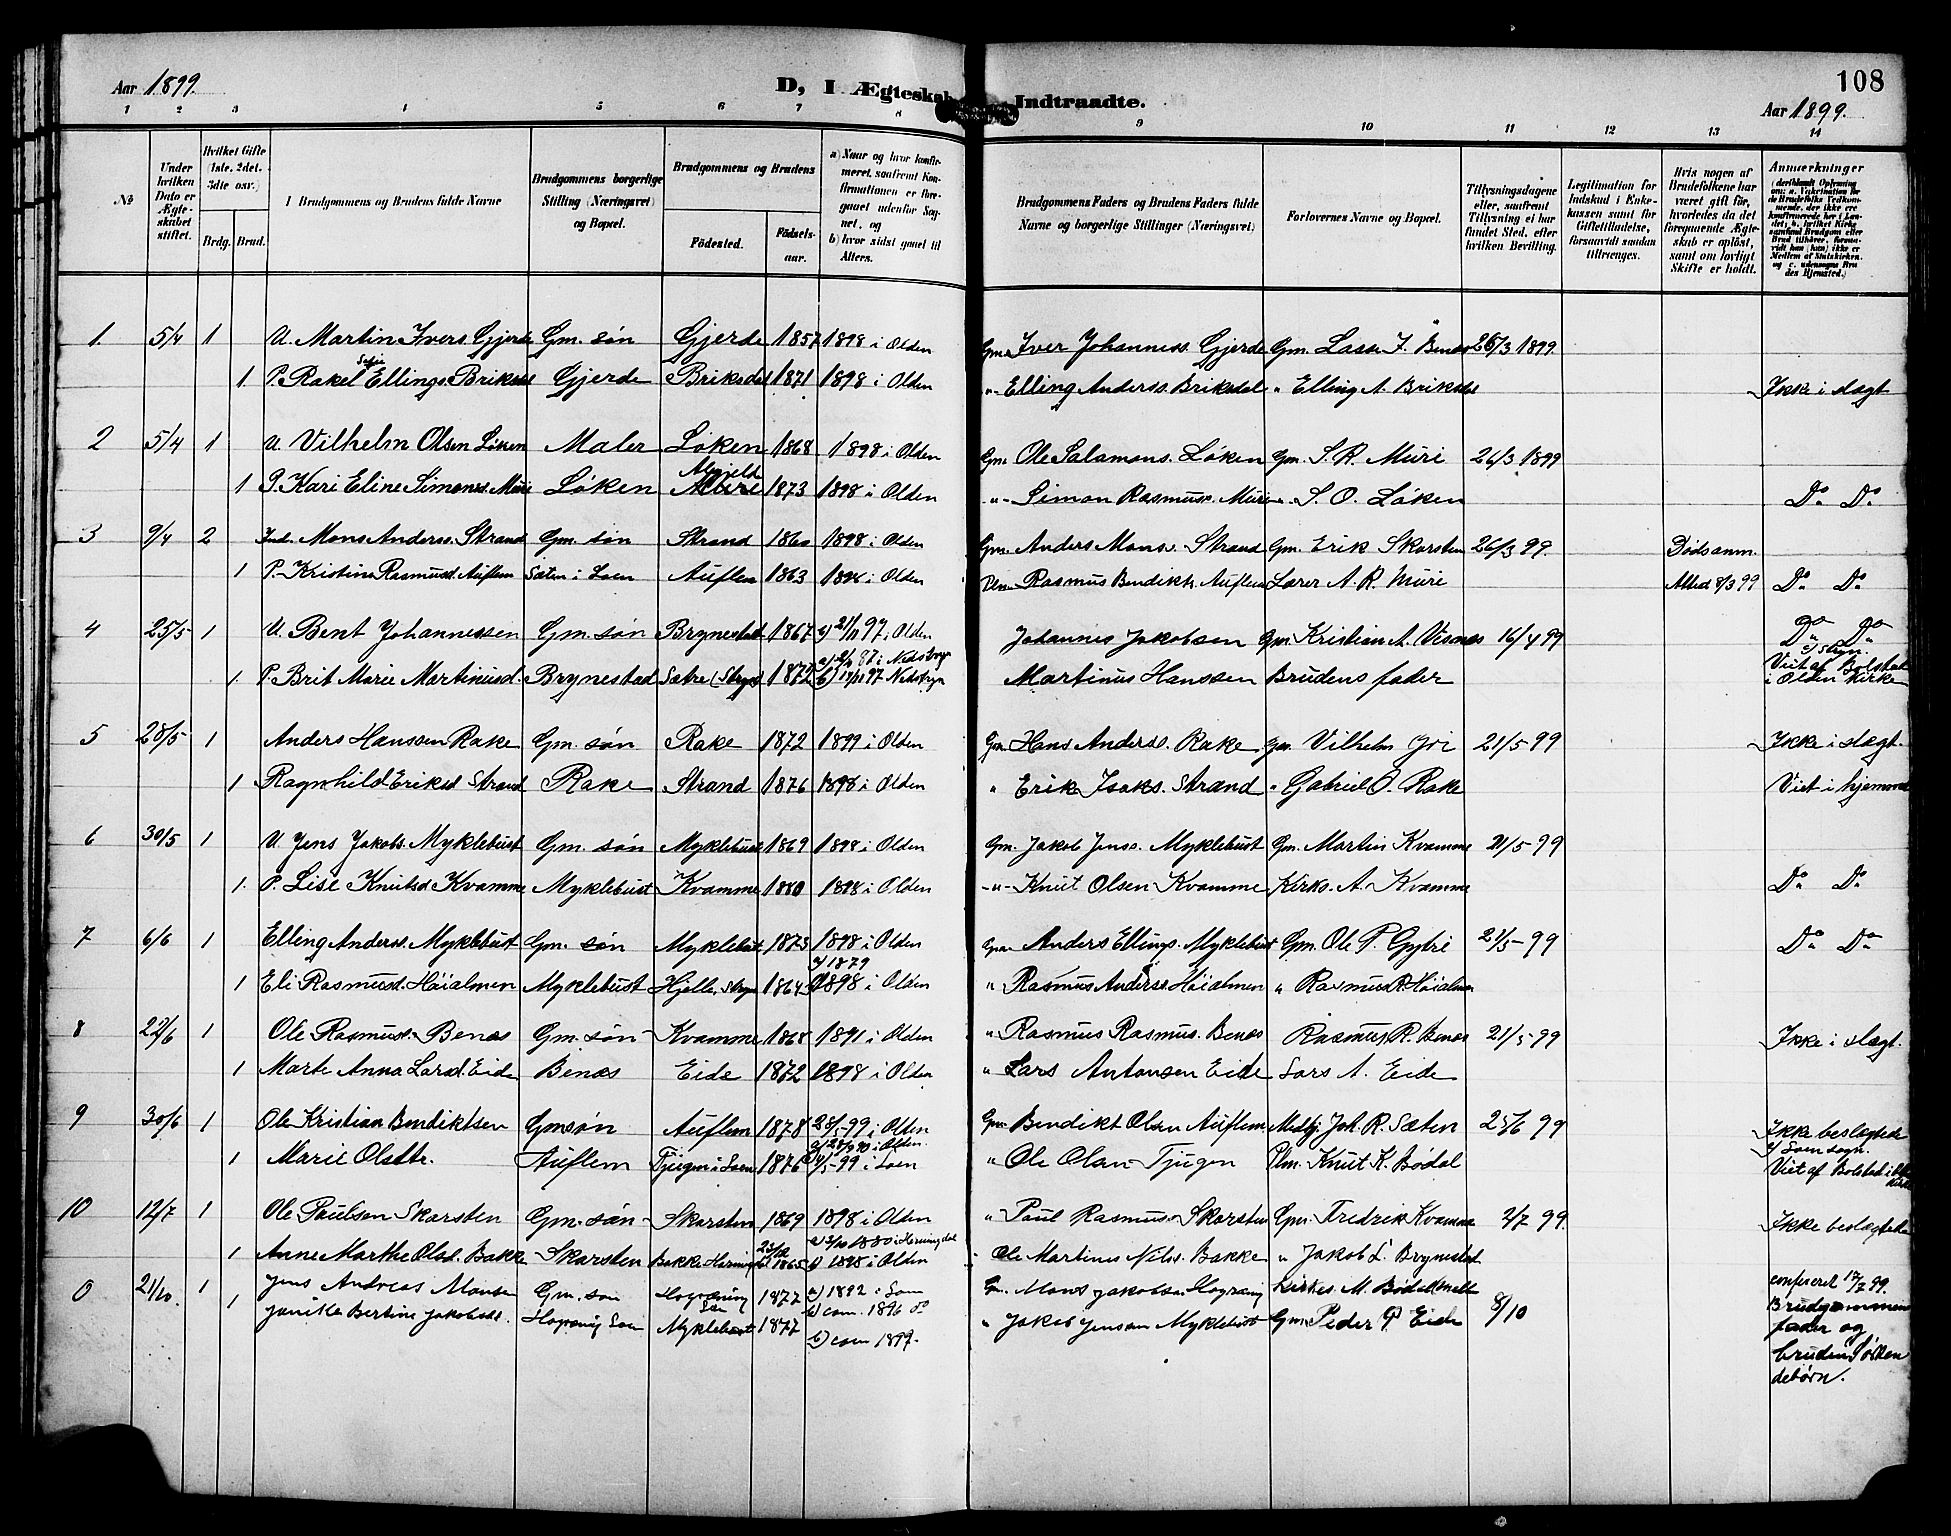 108
Aar 1899.
D, I Ægteskab Indtraadte.
Aar 1899.
1 2 3 4 5 6 7 8 9 10 11 12 13 14
№
Under hvilken Dato er Ægteskabet stiftet.
Hvilket Gifte (1ste, 2det, 3die osv.)
Brdg. Brud.
I Brudgommens og Brudens fulde Navne
Brudgommens borgerlige Stilling (Næringsvei) og Bopæl.
Brudgommens og Brudens
Födested. Födsels-aar.
a) Naar og hvor konfirmeret, saafremt Konfirmationen er foregaaet udenfor Sognet, og
b) hvor sidst gaaet til Alters.
Brudgommens Faders og Brudens Faders fulde Navne og borgerlige Stillinger (Næringsvei)
Forlovernes Navne og Bopæl.
Tillysningsdagene eller, saafremt Tillysning ei har fundet Sted, efter hvilken Bevilling.
Legitimation for Indskud i Enkekassen samt for Giftetilladelse, forsaavidt saadan tiltrænges.
Hvis nogen af Brudefolkene har været gift før, hvorledes da det foregaaende Ægteskab er oplöst, samt om lovligt Skifte er holdt.
Anmærkninger
1 5/4 1 U. Martin Ivers. Gjerde Gm. søn Gjerde 1857 1898 i Olden Gm. Iver Johanness. Gjerde Gm. Lasse J. Benæs 26/3 1899
1 P. Rakel Sofie Ellingsd. Briksdal Gjerde Briksdal 1871 1898 i Olden " Elling Anderss. Briksdal " Elling A. Briksdal Ikke i slægt
2 5/4 1 U. Vilhelm Olsen Løken Maler Løken 1868 1898 i Olden Gm. Ole Salamons. Løken Gm. S. R. Muri 26/3 1899
1 P. Kari Eline Simonsd. Muri Løken Muri 1873 1898 i Olden " Simon Rasmuss. Muri " S. O. Løken Do Do
3 9/4 2 Mons Anderss. Strand Gm. søn Strand 1860 1898 i Olden Gm. Anders Mons. Strand Gm. Erik Skarsten 26/3 99 Dødsanm.
1 P. Kristine Rasmusd. Auflem Sæten i Loen Auflem 1863 1898 i Olden Plm. Rasmus Bendikts. Auflem Lærer A. R. Muri Attest 8/3 99 Do Do
4 25/5 1 U. Bent Johannessen Gm. søn Brynestad 1867 b) 21/11 97 i Olden Johannes Jakobsen Gm. Kristian A. Visnes 16/4 99 Do Do
1. P. Brit Marie Martinusd. Brynestad Sætre (Stryn) 1872 Martinus Hanssen Brudens fader Viet af Bolstad i Olden Kirke
5 28/5 1 Anders Hanssen Rake Gm. søn Rake 1872 1899 i Olden Gm. Hans Anderss. Rake Gm. Vilhelm Yri 21/5-99 Ikke i slægt.
1 Ragnhild Eriksd Strand Rake Strand 1876 1898 i Olden " Erik Isaks. Strand " Gabriel O. Rake Viet i hjemmet
6 30/5 1 U. Jens Jakobs. Myklebust Gm. søn Myklebust 1869 1898 i Olden Gm. Jakob Jenss. Myklebust Gm. Martin Kvamme 21/5-99
1. P. Lise Knutsd Kvamme Myklebust Kvamme 1880 1898 i Olden " Knut Olsen Kvamme Kirks. A. Kvamme Do Do
7 6/6 1 Elling Anderss. Myklebust Gm. søn Myklebust 1873 1898 i Olden Gm. Anders Ellings. Myklebust Gm. Ole P. Gytri 21/5-99 Do Do
1 Eli Rasmusd. Høialmen Myklebust Hjelle, Stryn 1864 a) 1879 b) 1898 i Olden " Rasmus Anderss. Høialmen " Rasmus R. Høialmen
8 22/6 1 Ole Rasmuss. Benæs Gm. søn Kvamme 1868 1891 i Olden " Rasmus Rasmus. Benæs Rasmus R. Benæs 21/5-99 Ikke i slægt.
1 Marte Anna Larsd. Eide Benæs Eide 1872 1898 i Olden " Lars Antonsen Eide Lars A. Eide
9 30/6 1 Ole Kristian Bendiktsen Gmsøn Auflem 1878 28/5-99 i Olden Gm. Bendikt Olsen Auflem Medhj. Joh. R. Sæten 25/6 99 Ikke beslægtede
1 Marie Olsdtr. Auflem Tjugen i Loen 1876 " Ole Olsen Tjugen Plm. Knut K. Bødal Viet af Bolstad i
10 12/7 1 Ole Paulsen Skarsten Gm. søn Skarsten 1869 1898 i Olden " Paul Rasmuss. Skarsten Gm. Fredrik Kvamme 2/7 99. Ikke beslægtede
1 Anne Marthe Olsd. Bakke Skarsten Bakke Horning. 23/12 1865 a) 3/10 1880 i Horningdal b) 1898 i Olden " Ole Martinus Nils. Bakke " Jakob L. Brynestad
0 21/10. 1 Jens Andreas Monsen Gm. søn Hogrening Loen 1877 a) 1892 i Loen b) com. 1896 do Gm. Mons Jakobsen Hogrenig Kirkes. M. Bødal confereret 17/7 99.
1 Janikke Bertine Jakobsdt. Hogrenig Loen Myklebust 1877 b) com 1897. " Jakob Jensen Myklebust Gm. Peder P. Eide 8/10 Brudgommens fader og bruden søskendebørn.